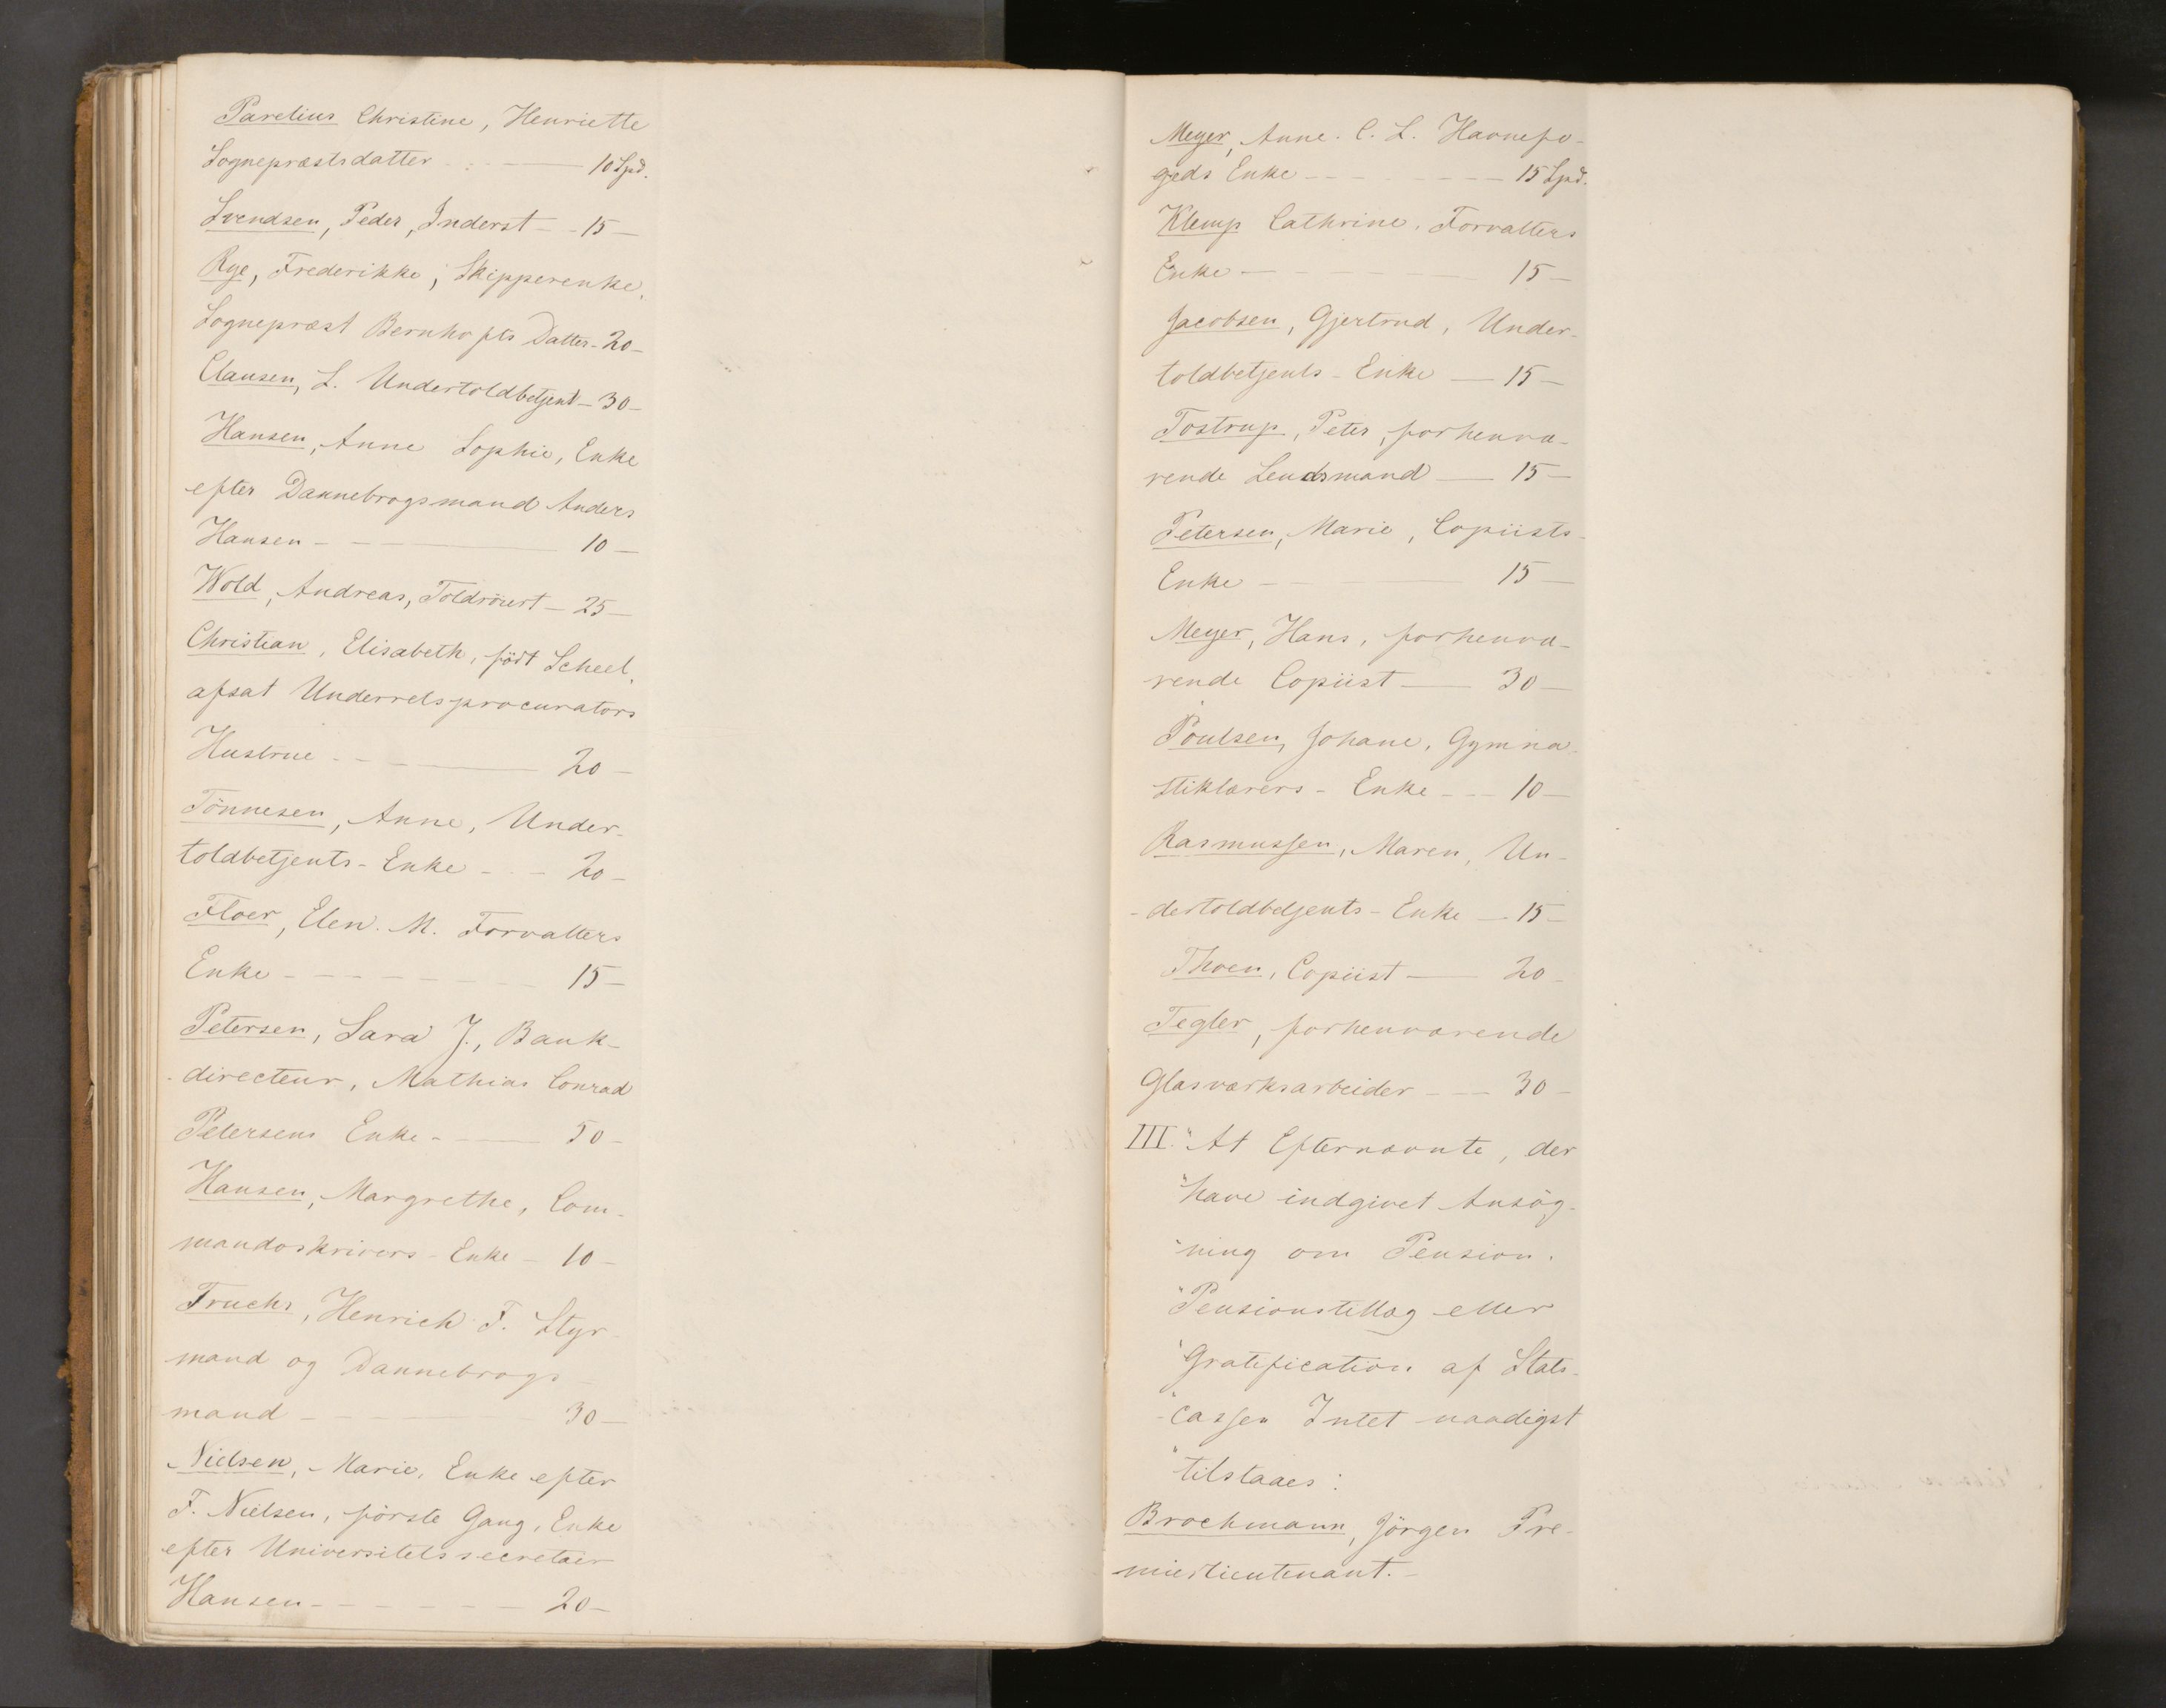 Parelius Christine, Henriette
Sognepræstsdatter - - — 10 Spd.
Svendsen, Peder, Inderst - - 15 —
Rye, Frederikke, Skipperenke,
Sognepræst Bernhofts Datter - 20 -
Clausen, L. Undertoldbetjent - 30 -
Hansen, Anne Sophie, Enke
efter Dannebrogsmand Anders
Hansen - - — 10 —
Wold, Andreas, Toldröiert - 25 —
Christian, Elisabeth, födt Scheel,
afsat Underretsprocurators
Hustrue - - — 20 —
Tönnesen, Anne, Under-
toldbetjents - Enke - - - 20 -
Floer, Elen. M. Forvalters
Enke - - - - - 15 —
Petersen, Sara J., Bank-
directeur, Mathias Conrad
Petersens Enke - — 50 -
Hansen, Margrethe, Com-
mandoskrivers - Enke - 10 -
Fruchs, Henrich F. Styr-
mand og Dannebrogs-
mand - - - - 30 —
Nielsen, Marie, Enke efter
F. Nielsen, förste Gang, Enke
efter Universitetssecretair
Hansen - - - - - 20 -
Meyer, Anne. C. L. Havnefo-
geds Enke - - - - 15 Spd.
Klemp Cathrine, Forvalters
Enke — - - - - 15 —
Jacobsen, Gjertrud, Under-
toldbetjents - Enke — 15 -
Tostrup, Peter, forhenvæ-
rende Lendsmand — 15 -
Petersen, Marie, Copiists-
Enke - - — 15 —
Meyer, Hans, forhenvæ-
rende Copiist — 30 —
Poulsen, Johane, Gymna-
stiklærers - Enke - - - 10 —
Rasmussen, Maren, Un-
- dertoldbetjents - Enke — 15 -
Thoen, Copiist — 20 -
Tegler, forhenværende
Glasværksarbeider - — 30 -
III. "At Efternævnte, der
"have indgivet Ansög-
"ning om Pension.
"Pensionstillæg eller
"Gratification af Stats-
"cassen Intet naadigst
"tilstaaes:
Brochmann, Jörgen Pre-
mierlieutenant. -